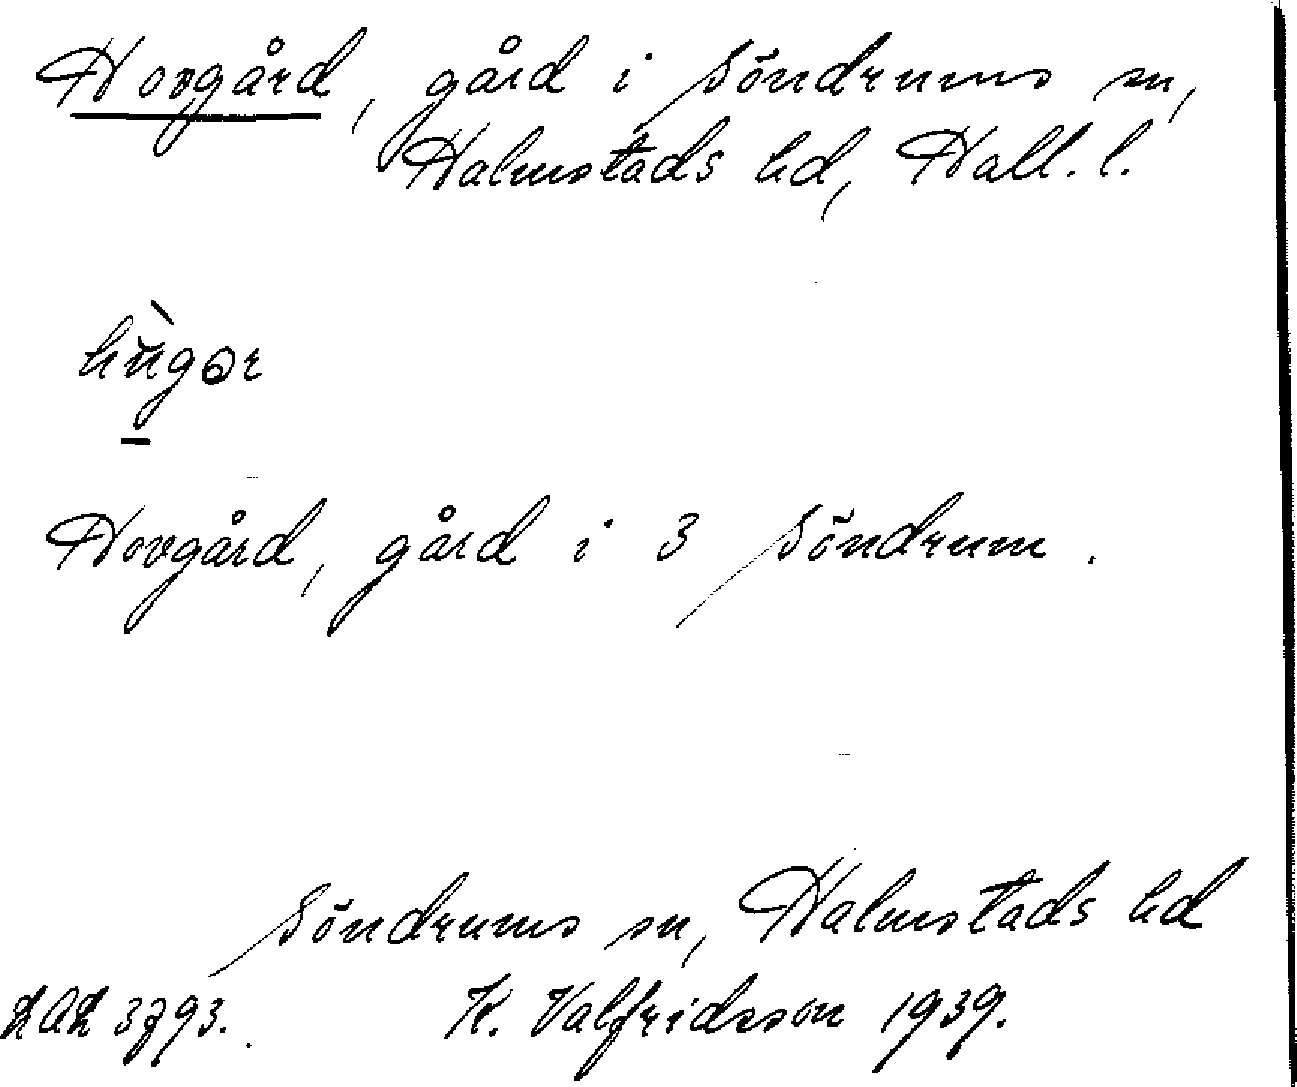 Hovgård, gård i Söndrums sn,
Halmstads hd, Hall. l.
Hovgård, gård i 3 Söndrum.
Söndrums sn, Halmstads hd
3793. K. Valfridsson 1939.